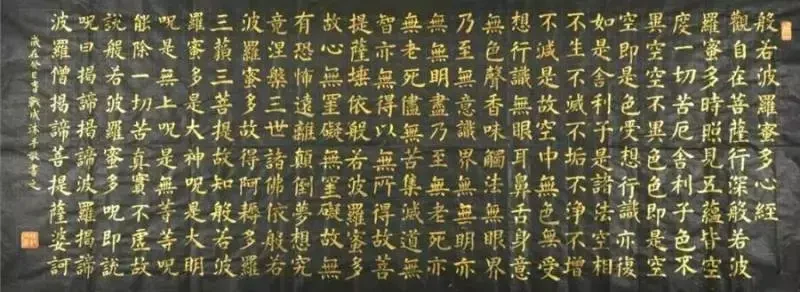 般若波羅蜜多心經
觀自在菩薩行深般若波
羅蜜多時照見五蘊皆空
度一切苦厄舍利子色不
異空空不異色色即是空
空即是色受想行識亦復
如是舍利子是諸法空相
不生不滅不垢不淨不增
不減是故空中無色無受
想行識無眼耳鼻舌身意
無色聲香味觸法無眼界
乃至無意識界無無明亦
無無明盡乃至無老死亦
無老死盡無苦集滅道無
智亦無得以無所得故菩
提薩埵依般若波羅蜜多
故心無罣礙無罣礙故無
有恐怖遠離顛倒夢想究
竟涅槃三世諸佛依般若
波羅蜜多故得阿耨多羅
三藐三菩提故知般若波
羅蜜多是大神呪是大明
呪是無上呪是無等等呪
能除一切苦真實不虛故
說般若波羅蜜多呪即說
呪曰揭諦揭諦波羅揭諦
波羅僧揭諦菩提薩婆訶
沐手敬書